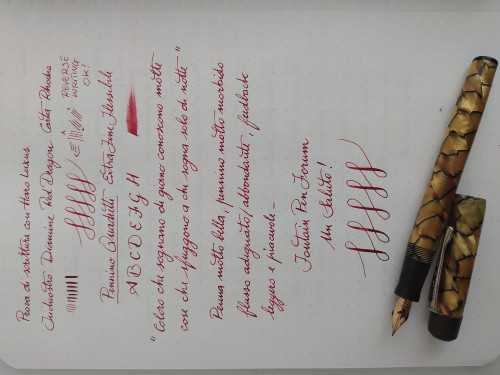 Prova di scrittura con Hero Lusus
Inchiostro Diamine Red Dragon Carta Rhodia
A REVERSE
WRITING
OK!
Pennino Canaditti Extra Fine Flessibile
A B C D E F G H
"Coloro che sognano di giorno conoscono molte
cose che sfuggono a chi sogna solo di notte"
Penna molto bella, pennino molto morbido
flusso adeguato, abbondante, feedback
leggero e piacevole-
Fountain Pen Forum
Un Saluto!